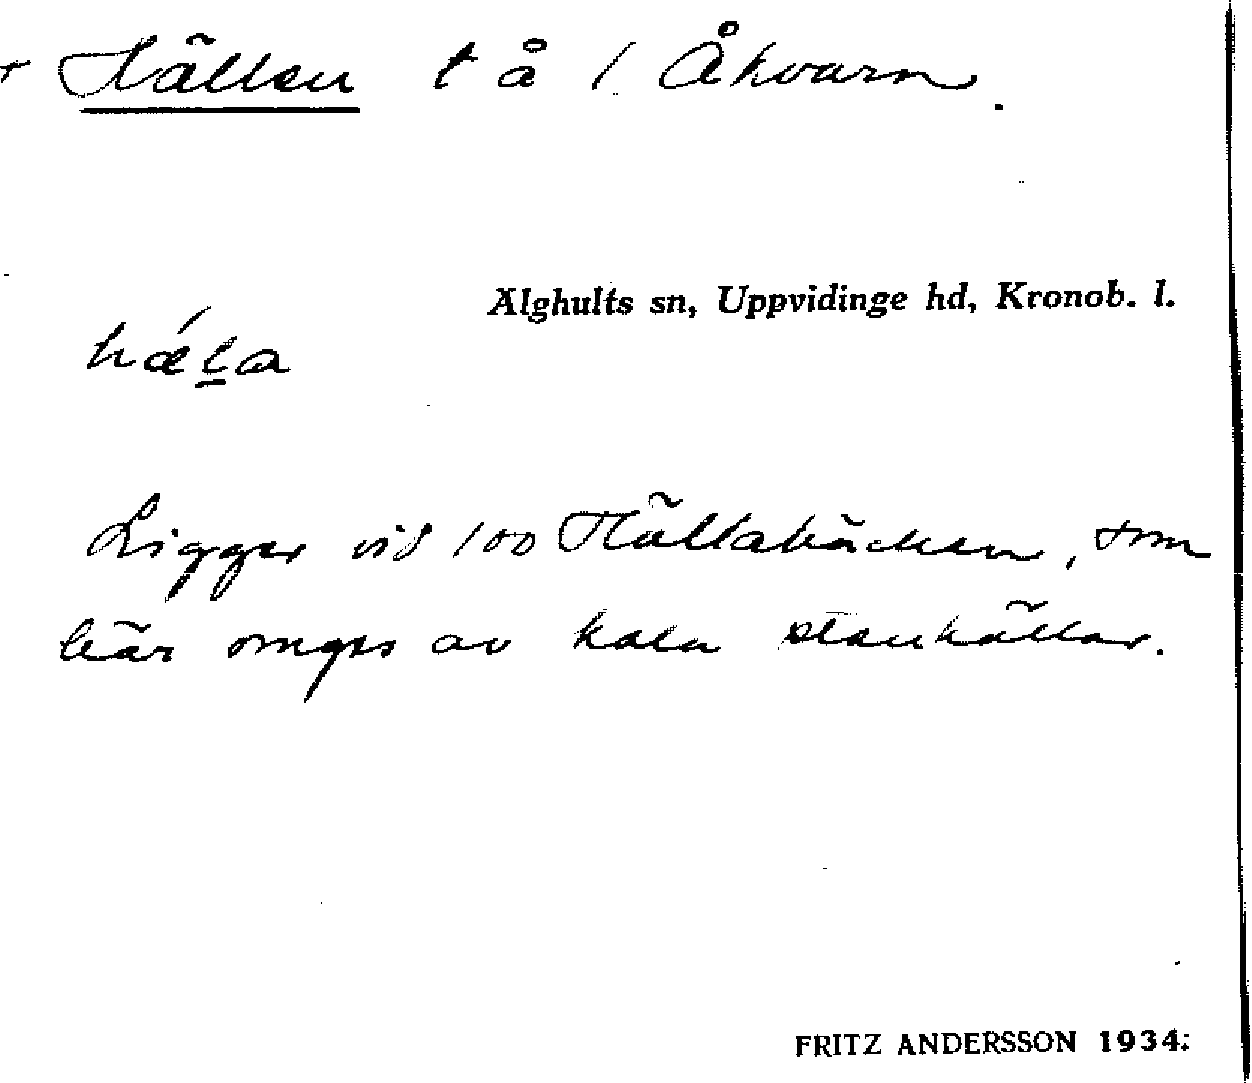 + Hällen t å 1 Åkvarn.
Älghults sn, Uppvidinge hd, Kronob. l.
hǽl̠a
Ligger vid 100 Hällabäcken, som
här omges av kala stenhällar.
FRITZ ANDERSSON 1934.